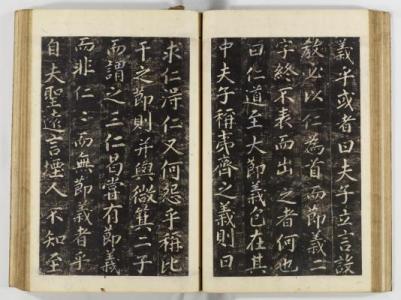 義乎或者曰夫子立言設
教必以仁為首而節義二
字終不表而出之者何也
曰仁道至大節義包在其
中夫子稱夷齊之義則曰
求仁得仁又何怨乎稱比
干之節則并與微箕二子
而謂之三仁曷嘗有節義
而非仁仁而無節義者乎
自夫聖遠言堙人不知至